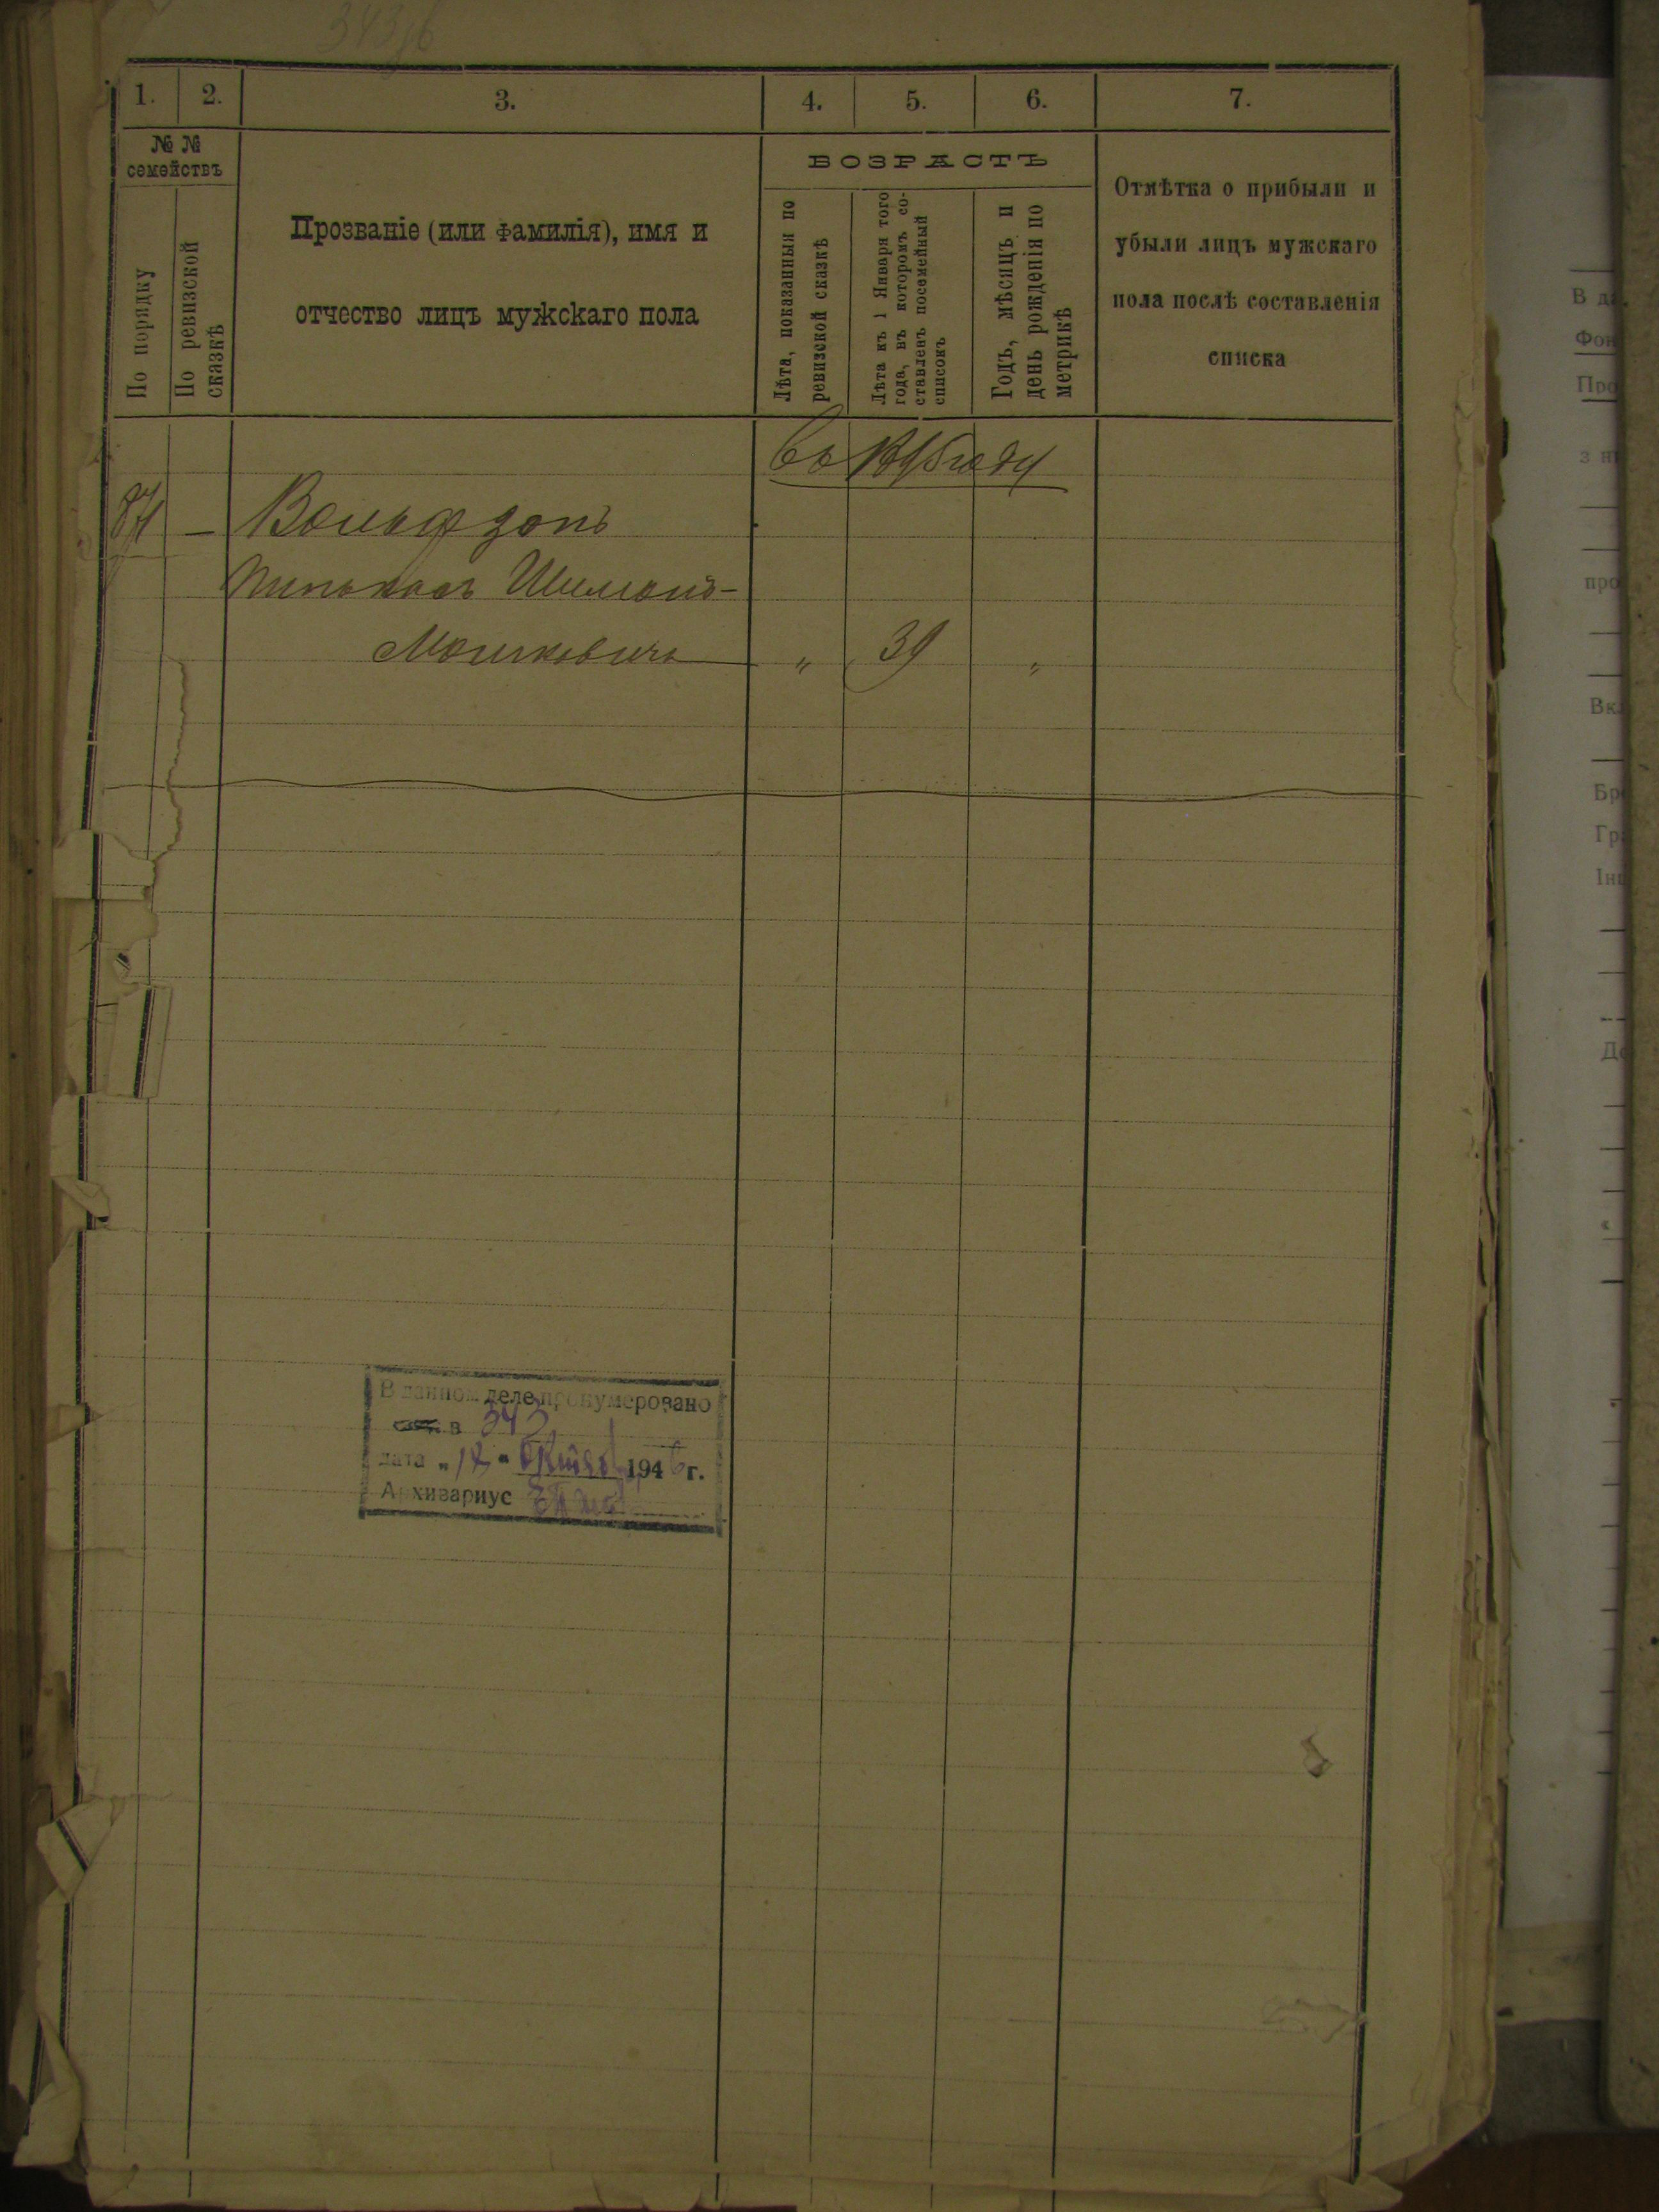 343об
1. 2. 3. 4. 5. 6. 7.
№ №
семействъ
По порядку
По ревизской
сказкѣ
Прозваніе (или фамилія), имя и
отчество лицъ мужскаго пола
ВОЗРАСТЪ
Лѣта, показанныя по
ревизской сказкѣ
Лѣта къ 1 Января того
года, въ которомъ со-
ставленъ посемейный
списокъ
Годъ, мѣсяцъ и
день рожденія по
метрикѣ
Отмѣтка о прибыли и
убыли лицъ мужскаго
пола послѣ составленія
списка
въ году
— Вольфзонъ
Пинхасъ Шимонъ-
Мошковичъ " 39 "
В данном деле пронумеровано
в 343
дата „ " 1946 г.
Архивариус
В да
Фон
Про
з н
про
Вк
Бр
Гр
Ін
Д